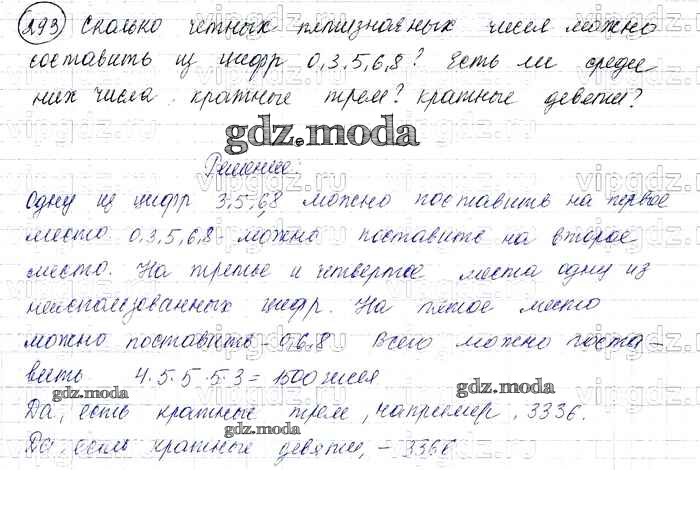 293 Сколько четных пятизначных чисел можно
составить из цифр 0,3,5,6,8? Есть ли среди
них числа кратные трем? кратные девяти?
gdz.moda
Решение:
Одну из цифр 3,5,6,8 можно поставить на первое
место. 0,3,5,6,8 - можно поставить на второе
место. На третье и четвертое места одну из
неиспользованных цифр. На пятое место
можно поставить - 0,6,8 Всего можно поста-
вить 4·5·5·5·3 = 1500 чисел
gdz.moda
gdz.moda
Да, есть кратные трем, например, 3336.
gdz.moda
Да, есть кратные девяти, - 3366